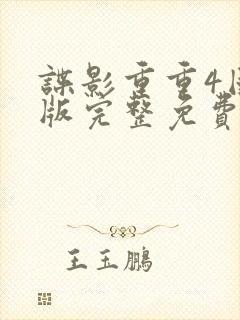 諜影重重4
版完整免費
王玉鵬